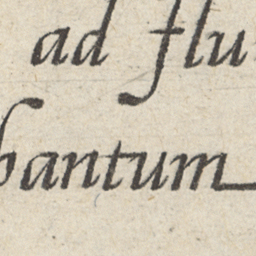 ad flu
bantum